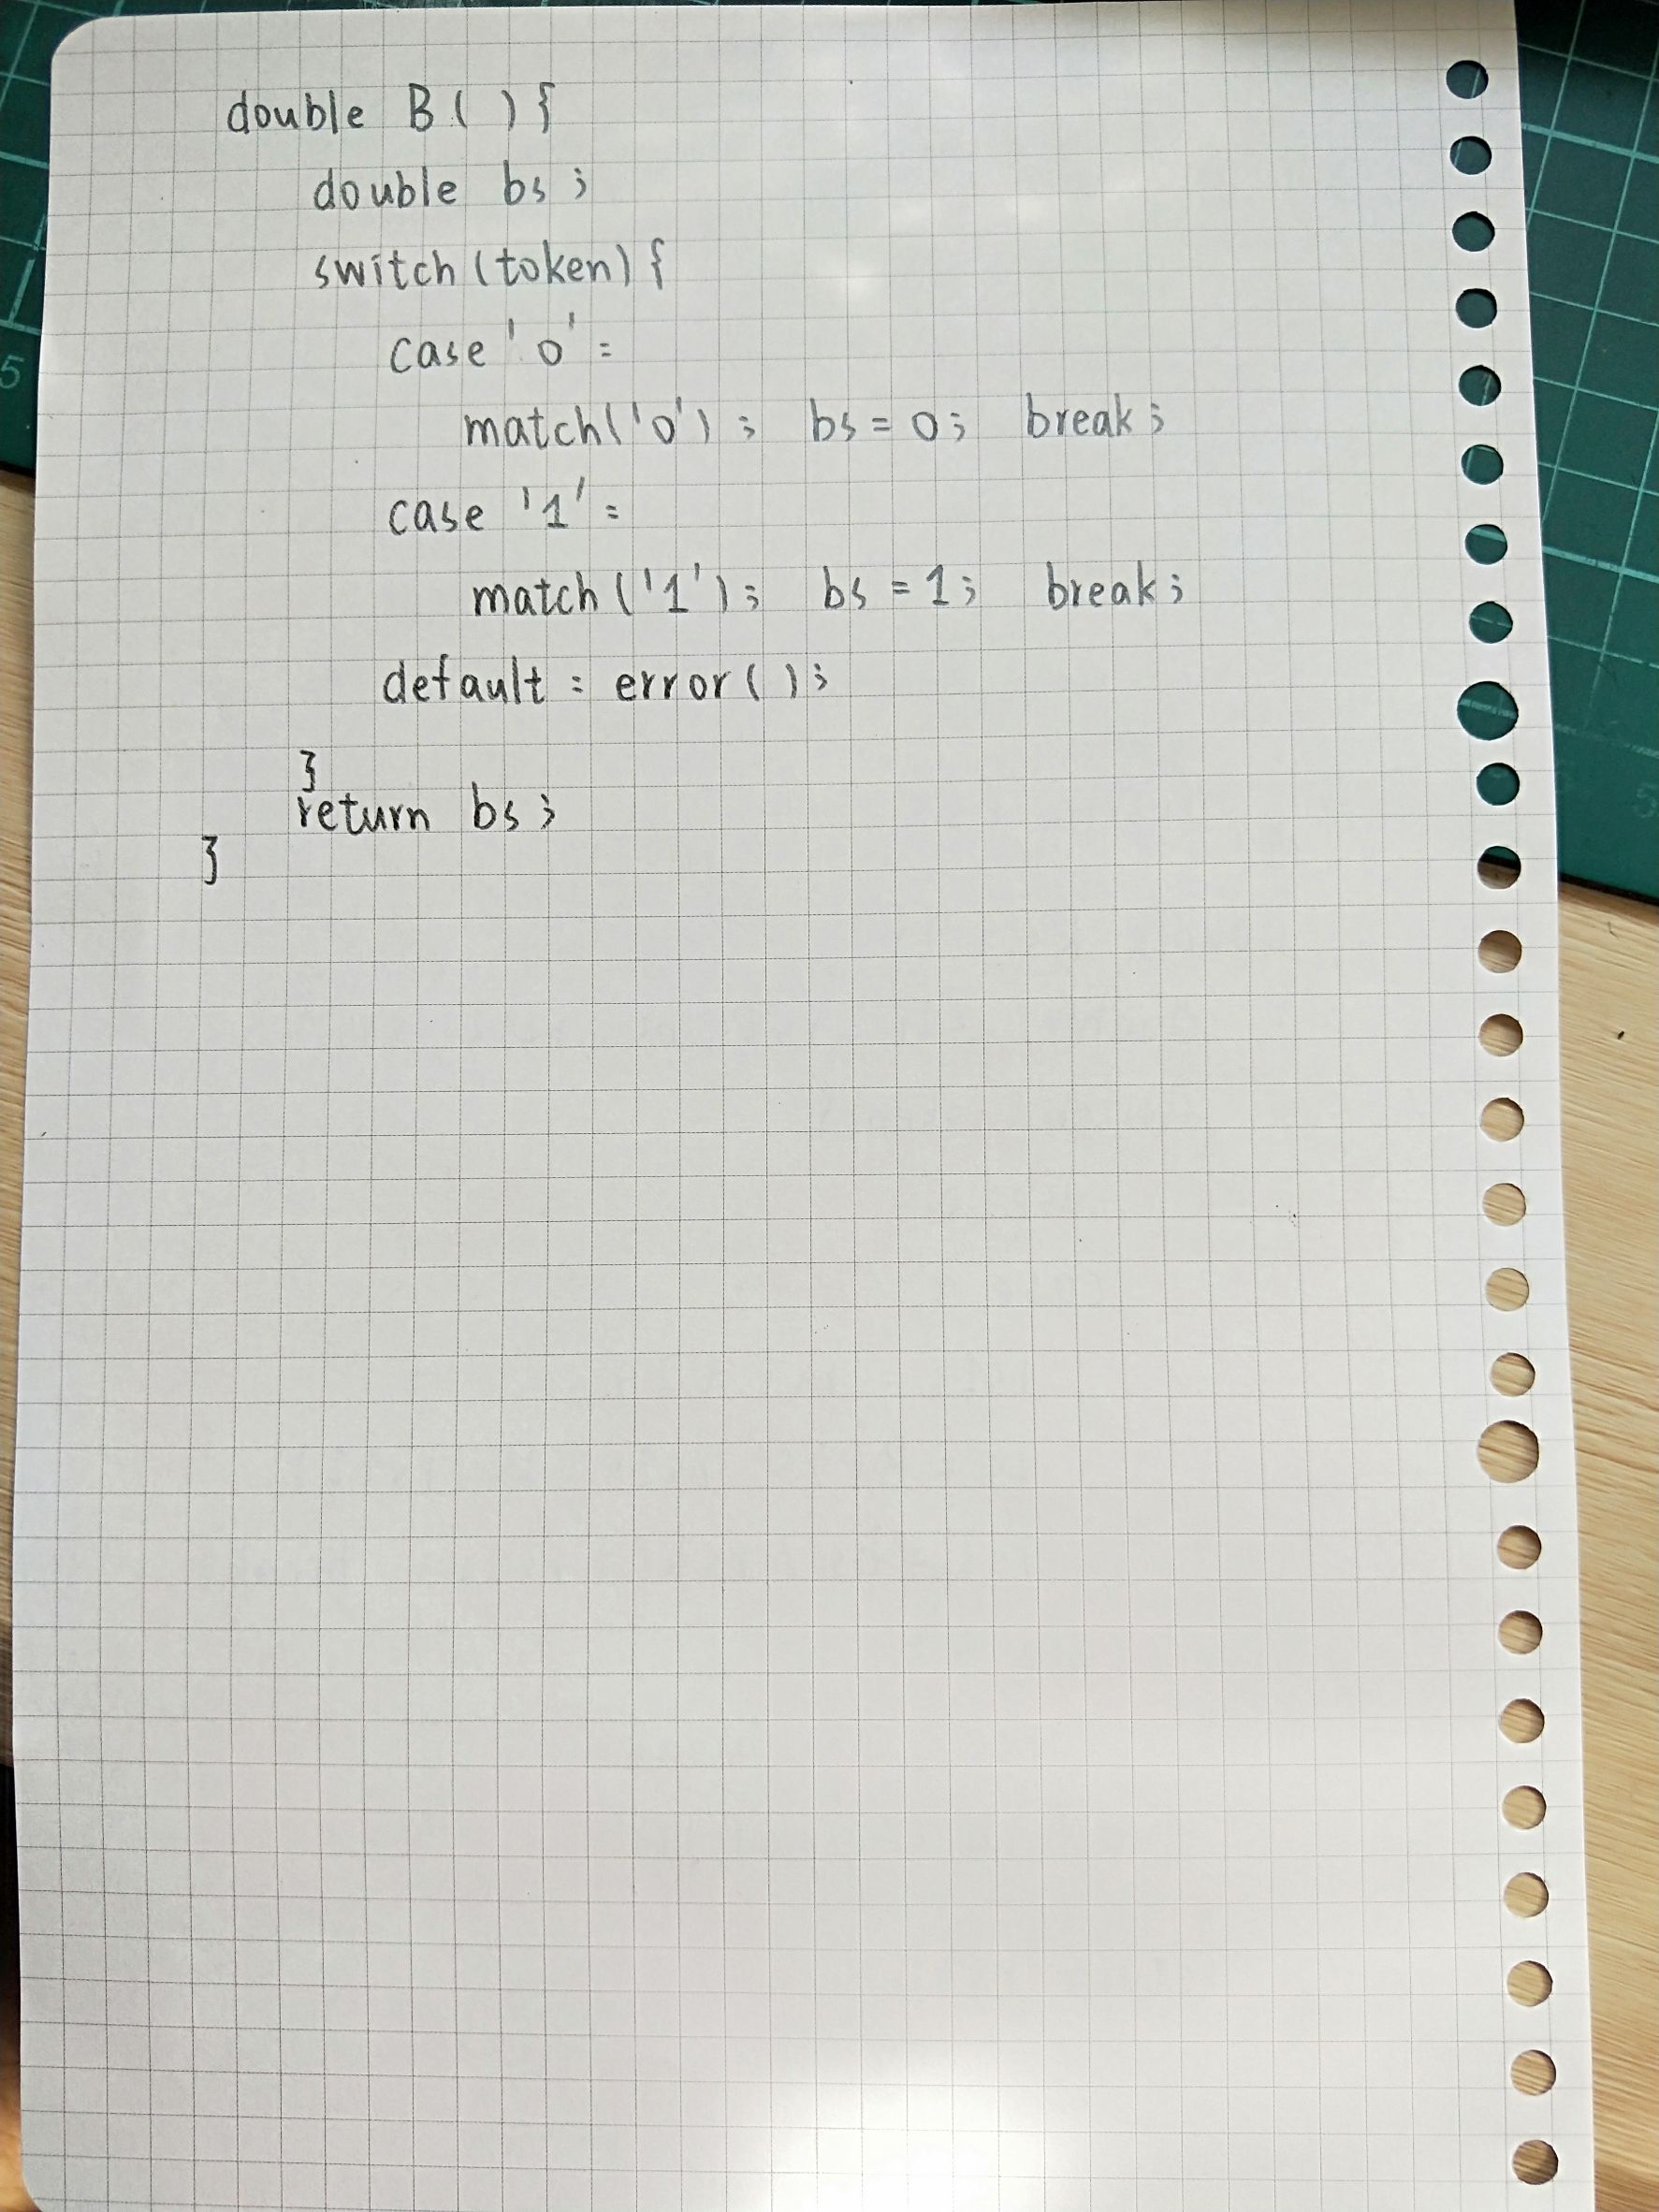 double B( ){
double bs;
switch(token){
case '0':
match('0'); bs=0; break;
case '1':
match('1'); bs=1; break;
default: error( );
}
return bs;
}
5
5